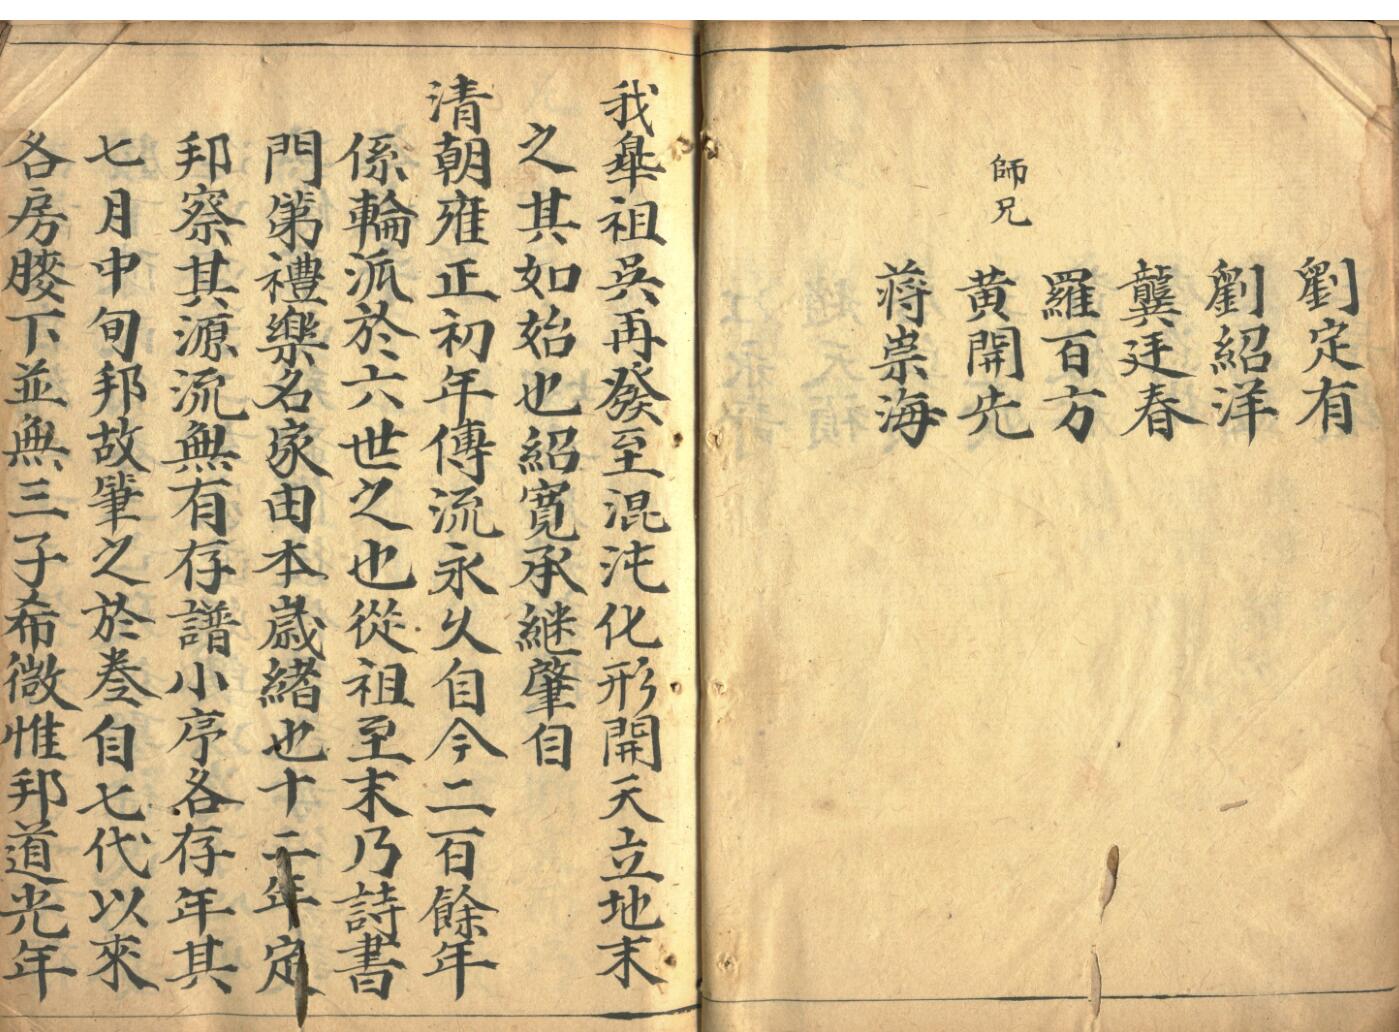 劉定有
劉紹洋
龔廷春
羅百方
師兄
黄開先
蔣崇海
我皐祖吳再發至混沌化形開天立地末
之其如始也紹寬承継肇自
清朝雍正初年傳流永久自今二百餘年
係輪派於六世之也從祖至末乃詩書
門第禮樂名家由本歲緒也十二年定
邦察其源流無有存譜小序各存年其
七月中旬邦故筆之於卷自七代以來
各房 下並無三子希微惟邦道光年